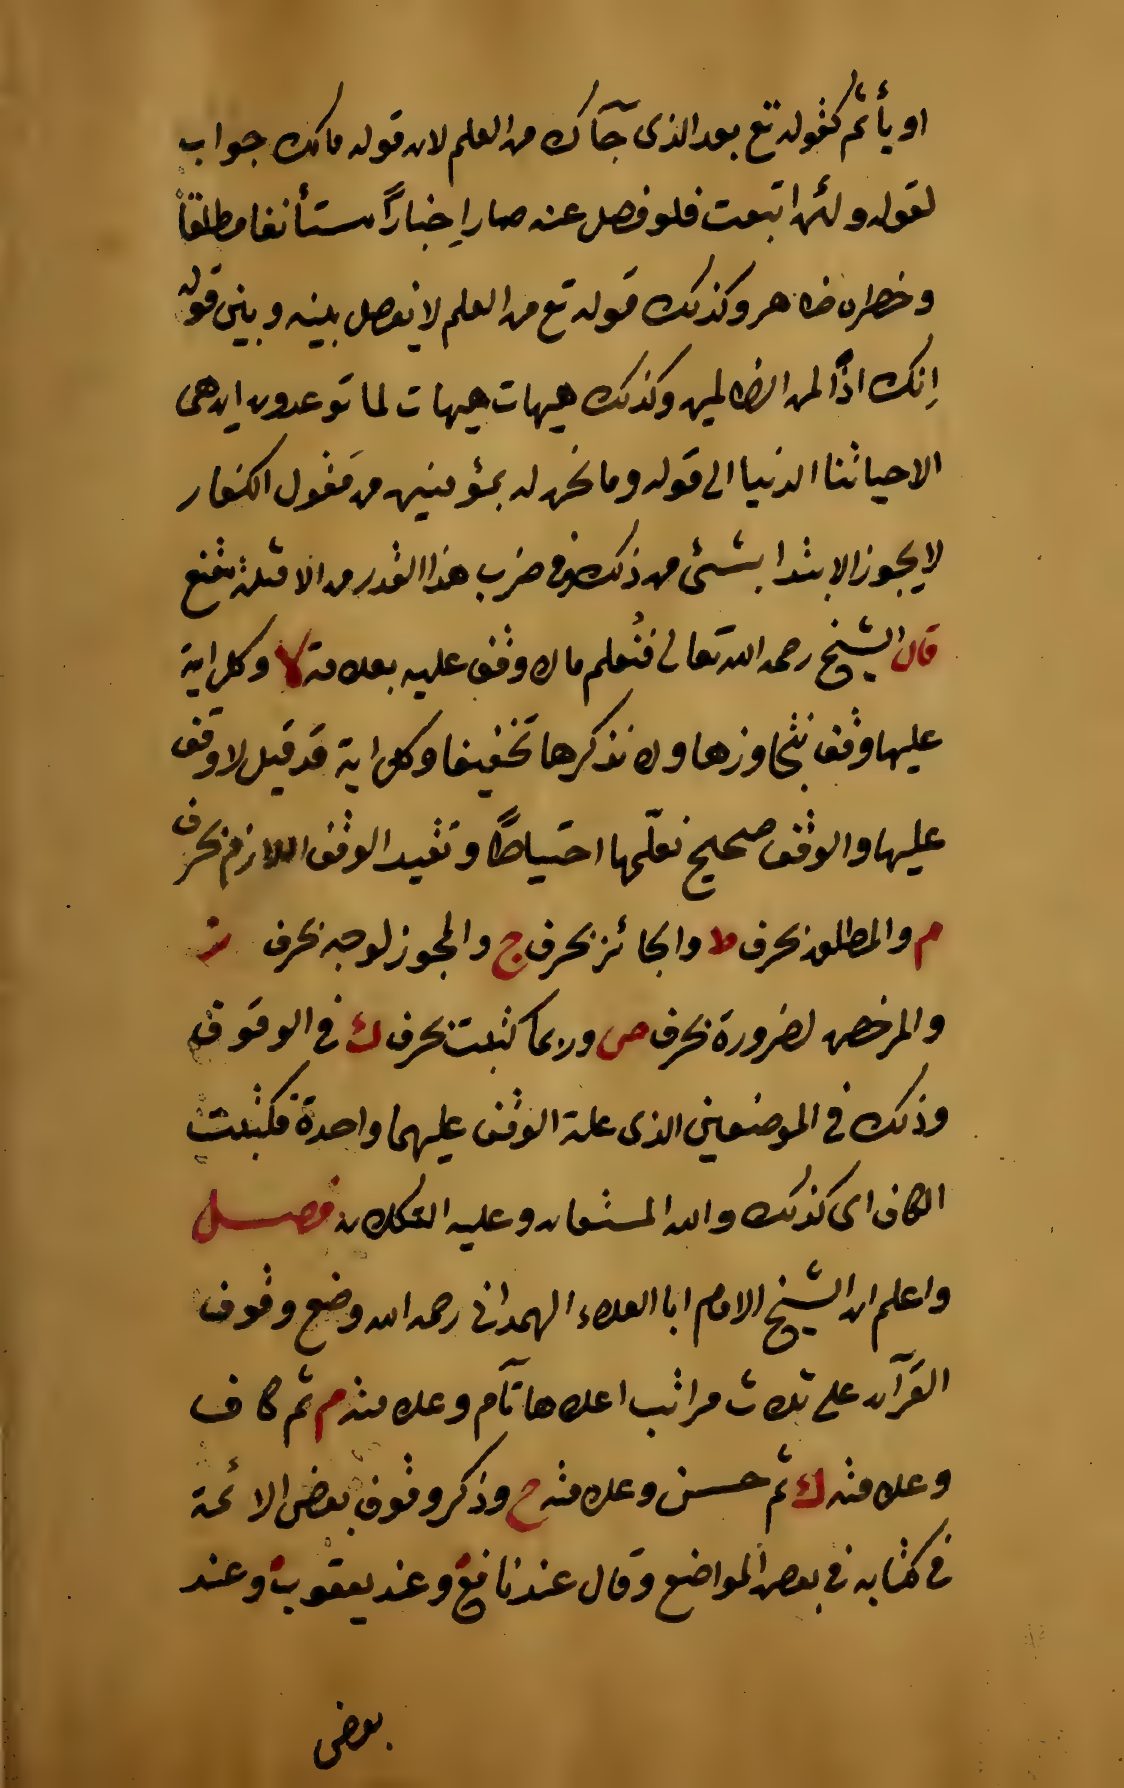 او يأثم كقوله تع بعد الذى جآك من العلم لان قوله مالك جواب
لقوله ولئن اتبعت فلو فصل عنه صار اِخباراً مستأنفا مطلقاً
وخطره ظاهر وكذلك قوله تع من العلم لا يفصل بينه وبين قوله
اِنك اذًا لمن الظالمين وكذلك هيهات هيهات لما توعدون ان هى
الا حياتنا الدنيا الى قوله وما نحن له بمؤمنين من مَقول الكفار
لا يجوز الابتدا بشئ من ذلك وفى ضرب هذا القدر من الامثلة مقنع
قال الشيخ رحمه الله تعالى فنُعلم مالا وقف عليه بعلامة لا وكل اية
عليها وقف نتجاوزها ولا نذكرها تخفيفا وكل اية قد قيل لا وقف
عليها والوقف صحيح نعلّمها احتياطًا وتقيد الوقف اللازم بحرف
م والمطلق بحرف ط والجائز بحرف ج والمجوز لوجه بحرف ز
والمرخص لضرورة بحرف ص وربما كتبت بحرف ك فى الوقوف
وذلك فى الموضعين الذى علة الوقف عليهما واحدة فكتبت
الكاف اى كذلك والله المستعان وعليه التكلان فصل
واعلم ان الشيخ الامام ابا العلاء الهمدانى رحمه الله وضع وقوف
القرآن على ثلاث مراتب اعلاها تآم وعلامته م ثم كاف
وعلامته ك ثم حسن وعلامته ح وذكر وقوف بعض الائمة
فى كتابه فى بعض المواضع وقال عند نافع وعند يعقوب وعند
بعض